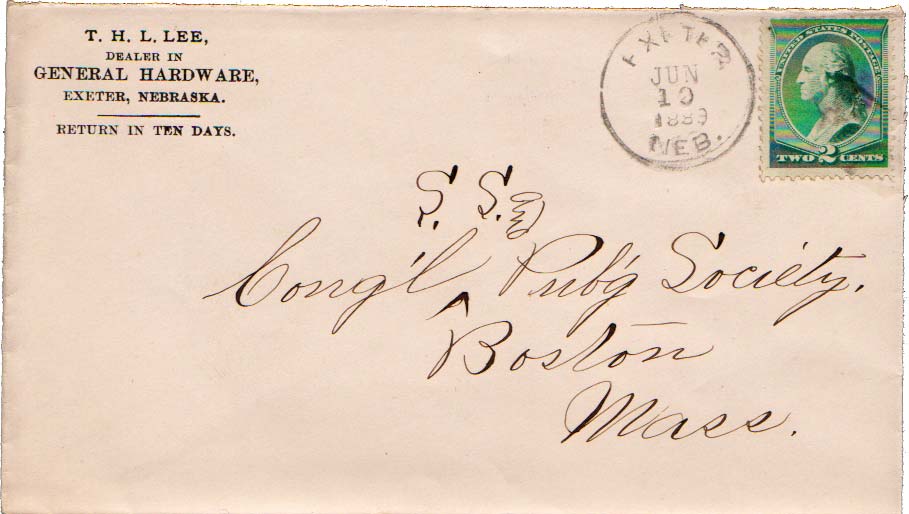 T. H. L. LEE,
DEALER IN
GENERAL HARDWARE,
EXETER, NEBRASKA.
RETURN IN TEN DAYS.
EXETER
JUN
10
1889
NEB.
UNITED STATES POSTAGE
TWO 2 CENTS
S. S. and
Cong'l ^ Pub'g Society,
Boston
Mass.